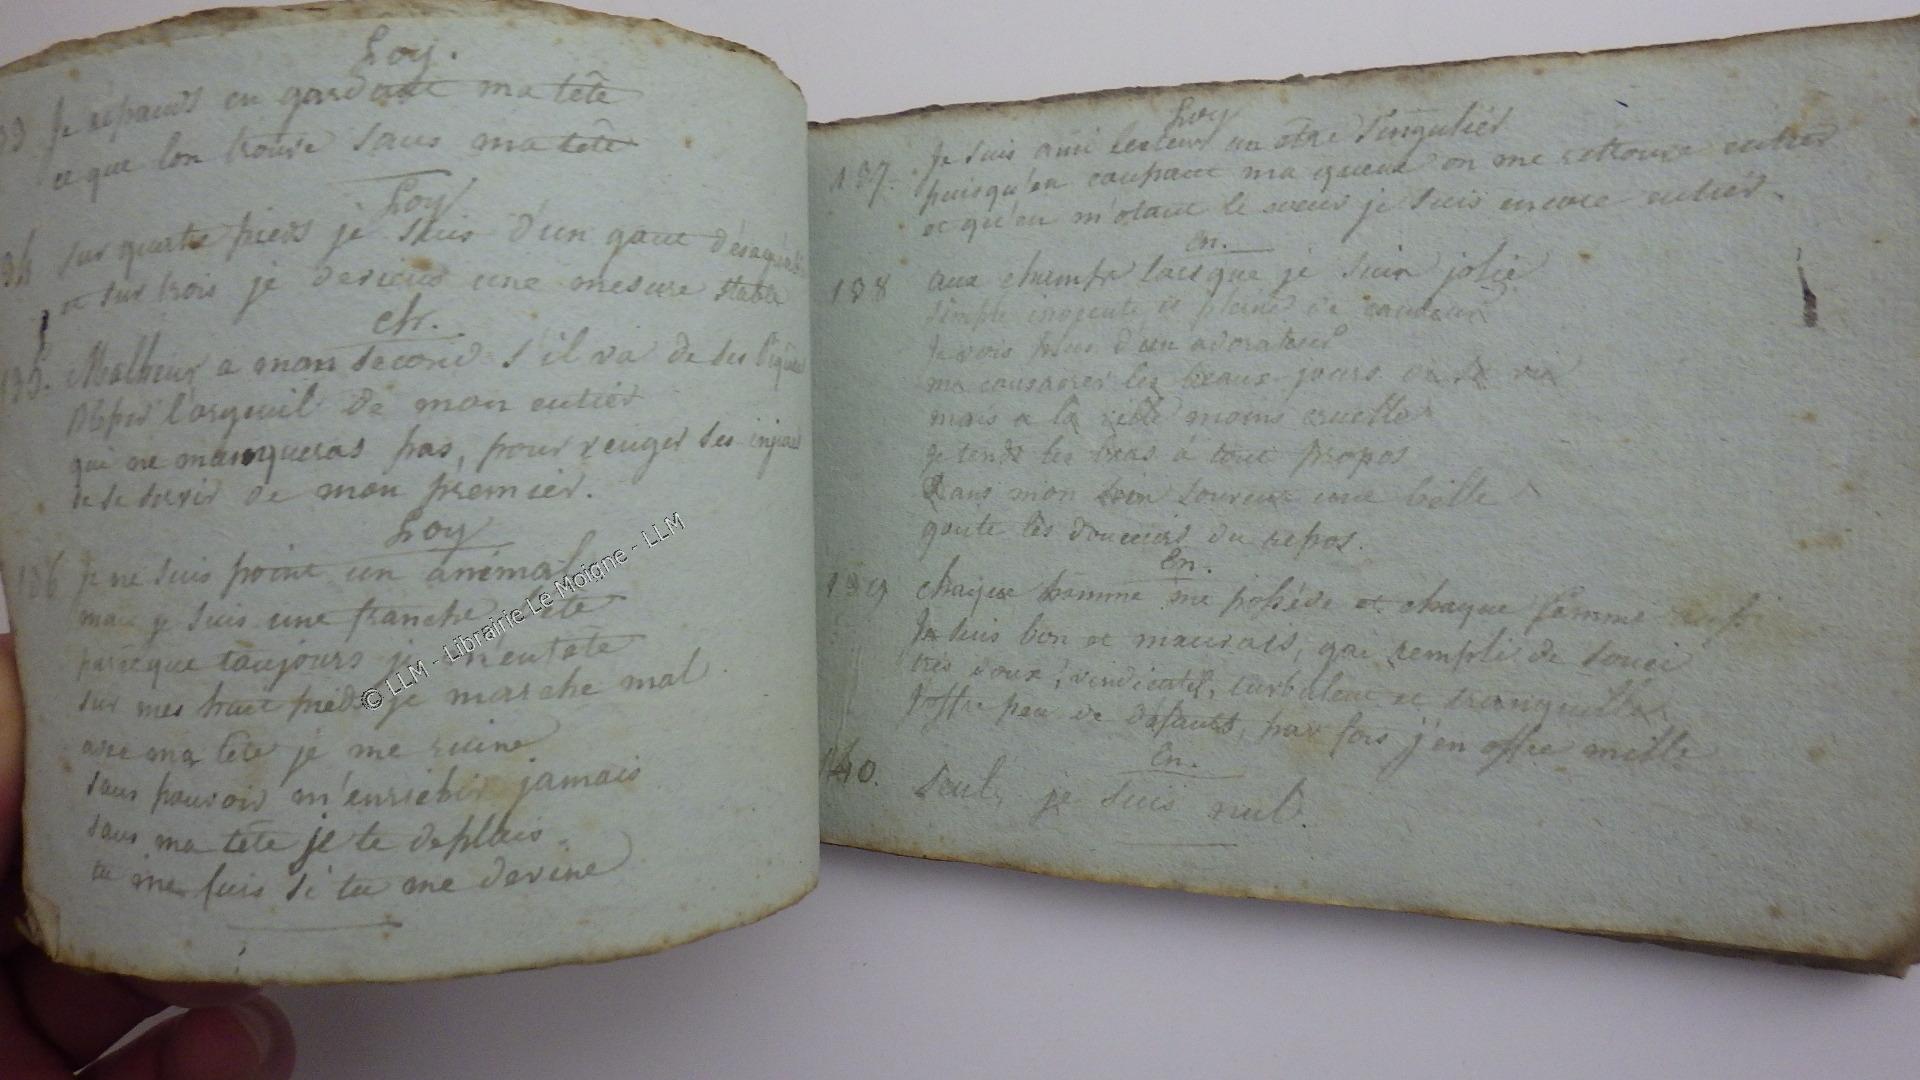 Log.
33 Je repands en gardant ma tête
ce que lon trouve sans ma tête
Log
34 sur quatre pieds je suis d'un gout désagréable
et sur trois je deviens une mesure stable
ch.
135. Malheur a mon second s'il va de ses
l'orgueil de mon entier
qui ne manqueras pas, pour venger ses injures
de se servir de mon premier.
Log
136 je ne suis point un animal
mais je suis une franche bête
parceque toujours je m'entête
sur mes huit pieds je marche mal
avec ma tête je me ruine
sans pouvoir m'enrichir jamais
sans ma tête je te deplais
tu me fuis si tu me devine
© LLM - Librairie Le Moigne - LLM
Log
137. Je suis ami lecteur un être singulier
puisqu'en coupant ma queue on me retrouve entier
et qu'en m'otant le coeur je suis encore entier.
en.
138 aux champs lorsque je suis jolie
simple inocente et pleine de candeur
Je vois plus d'un adorateur
me consacrer les beaux jours de sa vie
mais a la ville moins cruelle
je tends les bras à tout propos
dans mon sein souvent une belle
goute les douceurs du repos.
En.
139 chaque homme me posséde et chaque femme aussi
Je suis bon et mauvais, gai rempli de souci
très doux, vindicatif, turbulent et tranquille
J'offre peu de défauts, par fois j'en offre mille
En.
140. Seul, je suis nul.